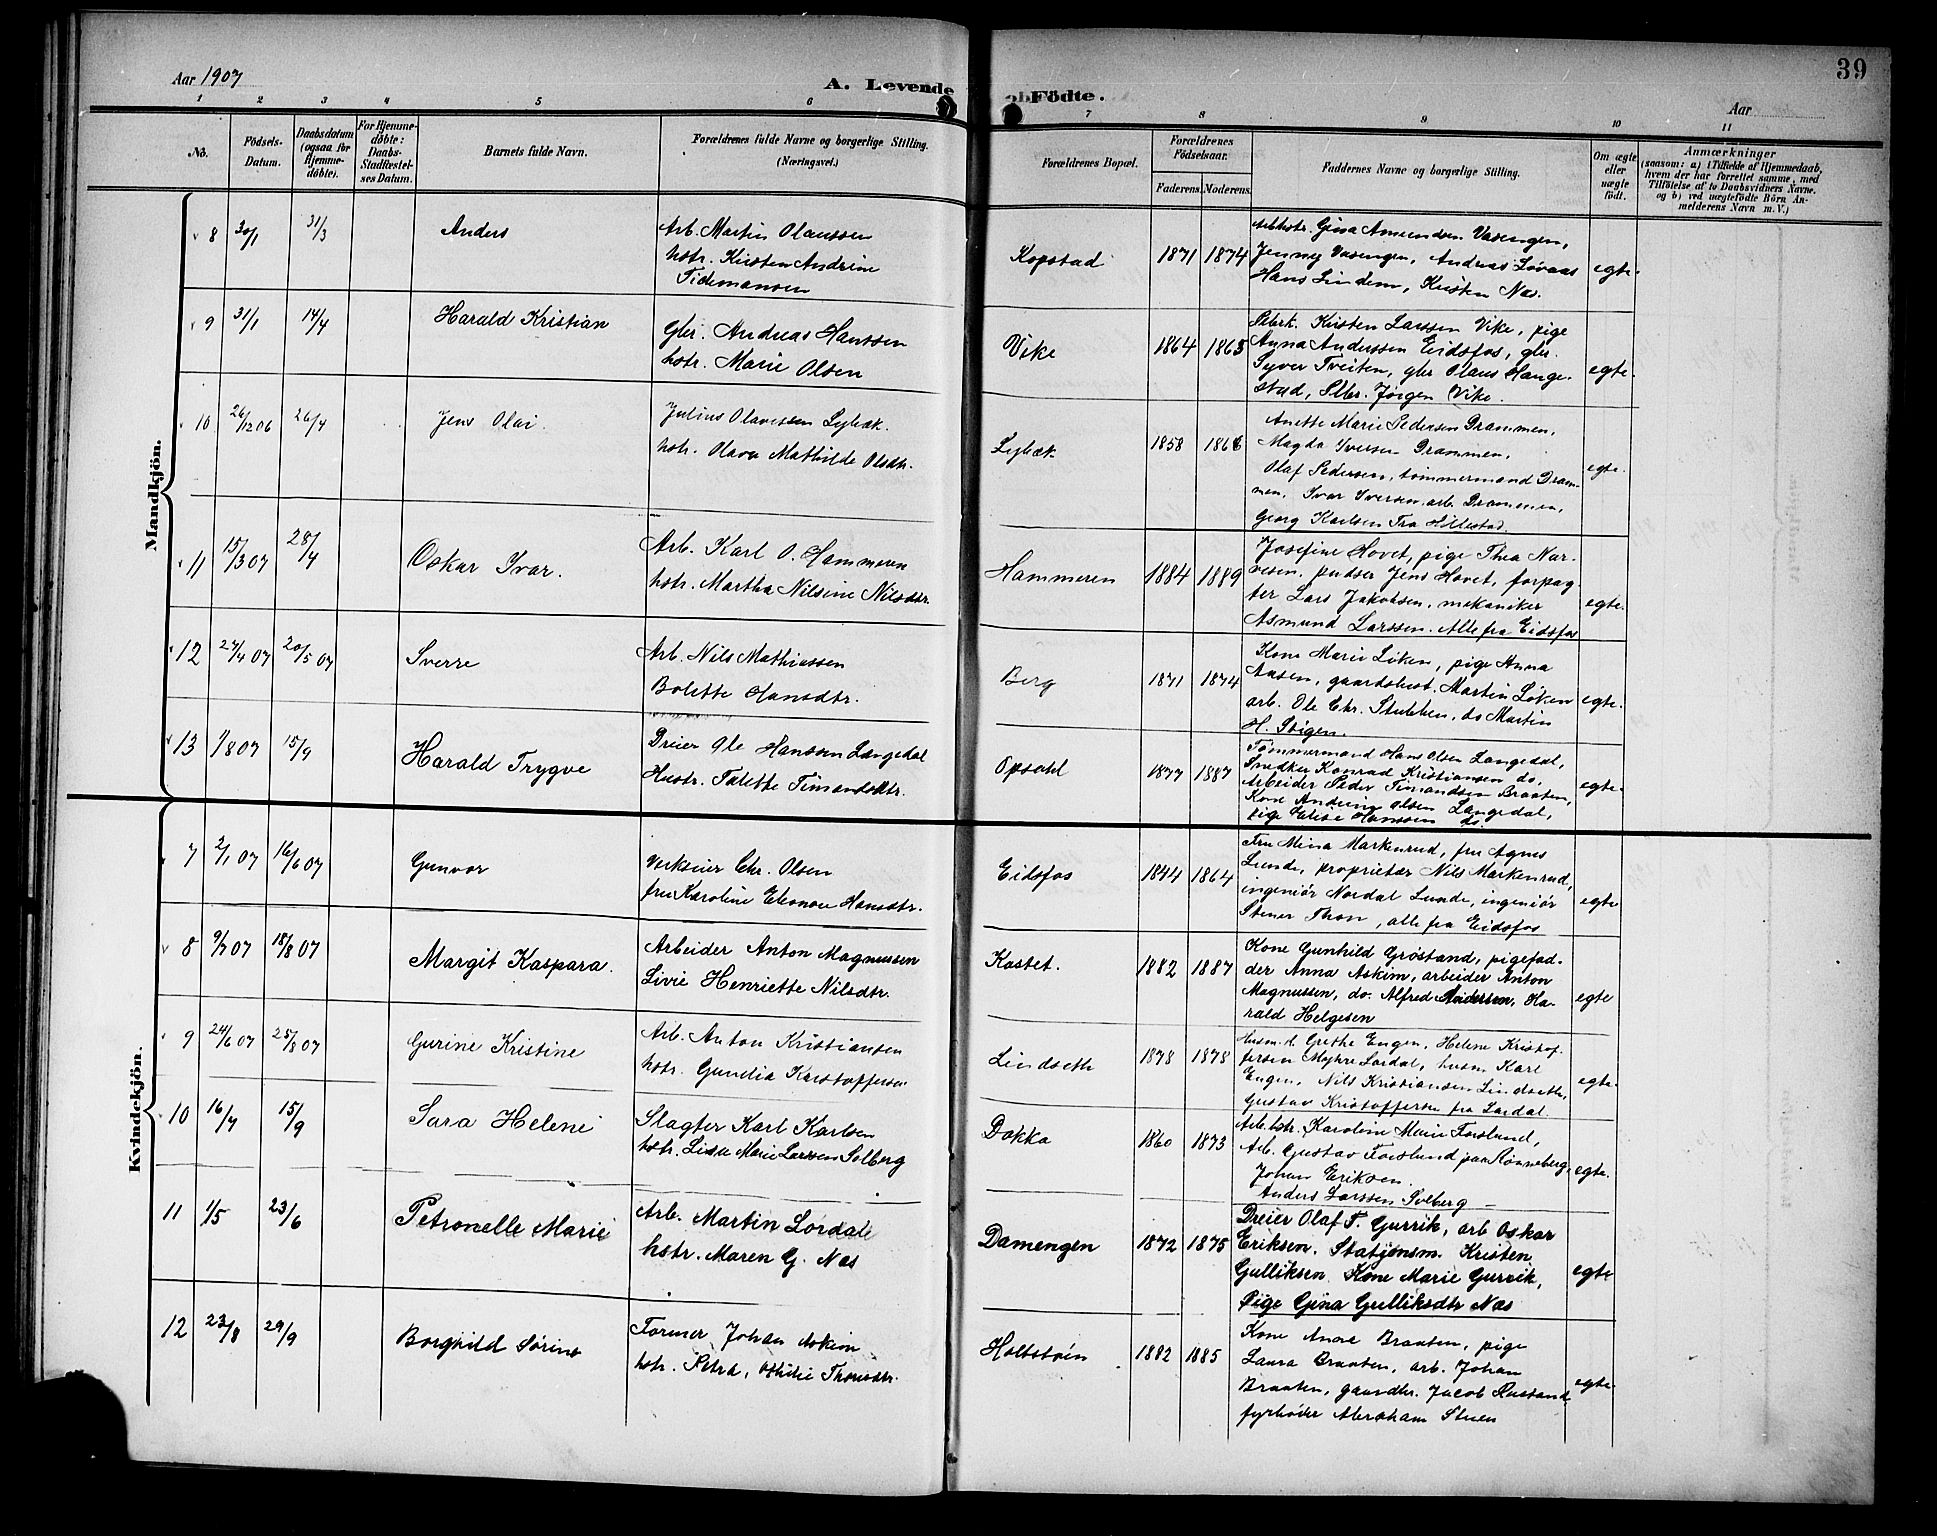 39
Aar 1907
A. Levende Födte.
Aar
1 2 3 4 5 6 7 8 9 10 11
No.
Födsels-
Datum.
Daabsdatum
(ogsaa for
Hjemme-
döbte).
For Hjemme-
döbte:
Daabs-
Stadfæstel-
ses Datum.
Barnets fulde Navn.
Forældrenes fulde Navne og borgerlige Stilling.
(Næringsvei.)
Forældrenes Bopæl.
Forældrenes
Födselsaar.
Faderens. Moderens.
Faddernes Navne og borgerlige Stilling.
Om ægte
eller
uægte
födt.
Anmærkninger
(saasom: a) i Tilfælde af Hjemmedaab,
hvem der har forrettet samme, med
Tilföielse af to Daabsvidners Navne.
og b) ved uægtefödte Börn An-
melderens Navn m. V.)
Mandkjön.
8 30/1 31/3 Anders
Arb. Martin Olaussen
hstr. Kirsten Andrine
Tidemansen
Kopstad 1871 1874
Arb.hstr. Gina Amundsen Vasengen,
Jenny Vasengen, Andreas Løvaas
Hans Lindem, Kristen Næs.
egte.
9 31/1 14/4 Harald Kristian
Gbr. Andreas Hanssen
hstr. Marie Olsen
Vike 1864 1865
Kristen Larssen Vike, pige
Anna Anderssen Eidsfos, gbr.
Syver Tveiten, gbr Olaus Hauge-
stad, Jørgen Vike.
egte.
10 26/12 06 26/4 Jens Olai.
Julius Olavessen Lybæk.
hstr. Olava Mathilde Olsdtr.
Lybæk 1858 1866
Anette Marie Pedersen Drammen,
Magda Iversen Drammen,
Olaf Pedersen, tømmermand Dram-
men, Ivar Iversen arb. Drammen,
Georg Karlsen Fra Hillestad
egte.
11 15/3 07 28/4 Oskar Ivar.
Arb. Karl O. Hammeren
hstr. Martha Nilsine Nilsdtr.
Hammeren 1884 1889
Josefine Hovet, pige Thea Nar-
vesen, pudser Jens Hovet, forpag-
ter Lars Jakobsen, mekaniker
Asmund Larssen. Alle fra Eidsfos
egte.
12 27/4 07 20/5 07 Sverre
Arb. Nils Mathiassen
Bolette Hansdtr.
Berg 1871 1874
Kone Marie Løken, pige Anna
Aasen, gaardsbest. Martin Løken
arb. Ole Chr. Stubben, do Martin
H. Stigen.
egte.
13 1/8 07 15/9 Harald Trygve
Dreier Ole Hanssen Langedal
Hustr. Talette Timandsdtr.
Opsahl 1877 1887
Tømmermand Hans Olsen Langedal,
Snedker Konrad Kristiansen do,
Arbeider Peder Timandsen Braaten,
Kone Andrine Olsen Langedal,
pige Elise Hanssen do.
egte.
Kvindekjön.
7 2/1 07 16/6 07 Gunvor
Verkseier Chr. Olsen
fru Karoline Eleonore Hansdtr.
Eidsfos 1844 1864
Fru Mina Markenrud, fru Agnes
Lunde, proprietær Nils Markenrud,
ingeniør Nordal Lunde, ingeniør
Stener Thon, alle fra Eidsfos
egte
8 9/7 07 18/8 07 Margit Kaspara.
Arbeider Anton Magnussen
Livie Henriette Nilsdtr.
Kastet. 1882 1887
Kone Gunhild Grøstand, pigefad-
der Anna Askim, arbeider Anton
Magnussen, do. Alfred Andersen, Ha-
rald Helgesen
egte
9 24/6 07 25/8 07 Gurine Kristine
Arb. Anton Kristiansen
hstr. Gunelia Kristoffersen
Lindseth 1878 1878
Husm.d. Grethe Engen, Helene Kristof-
fersen Myhre Lardal, husm Karl
Engen, Nils Kristiansen Lindseth,
Gustav Kristoffersen fra Lardal.
egte.
10 16/7 15/9 Sara Helene
Slagter Karl Karlsen
hstr. Lisa Marie Larssen Solberg
Dokka 1860 1873
Arb.hstr. Karoline Marie Forslund,
Arb. Gustav Forslund paa Rønneberg,
Johan Eriksen.
Anders Larssen Solberg —
egte.
11 1/5 23/6 Petronelle Marie
Arb. Martin Lørdale
hstr. Maren G. Næs
Damengen 1872 1875
Dreier Olaf T. Gurrik, arb Oskar
Eriksen. Statjonsm. Kristen
Gulliksen. Kone Marie Gurvik,
Pige Gina Gulliksdtr Næs
egte
12 23/8 29/9 Borghild Sørine
Former Johan Askim
hstr. Petra, Othilie Thorsdtr.
Holtstøin 1882 1885
Kone Anne Braaten, pige
Laura Braaten, arb. Johan
Braaten, gaardbr. Jacob Rustand
fyrbøder Abraham Stuen
egte